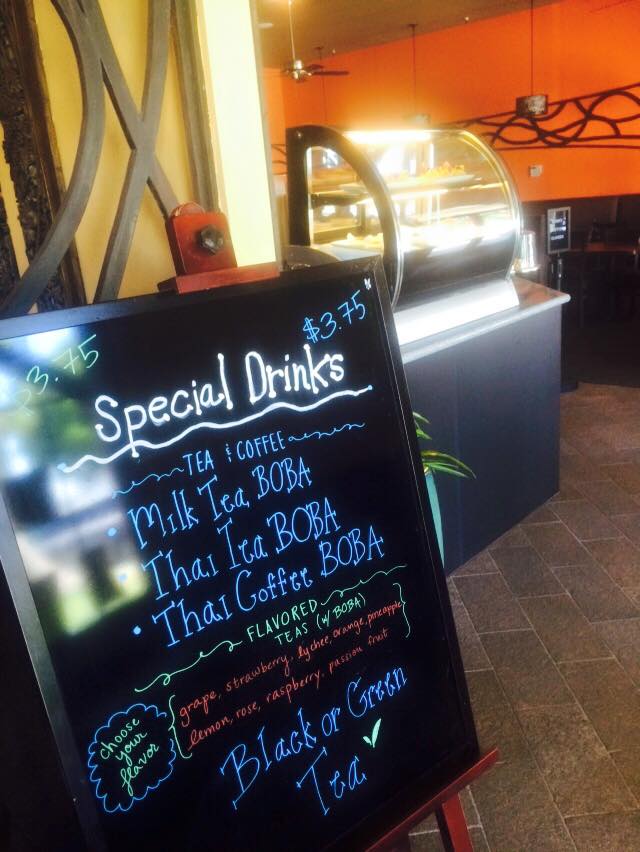 $3.75
$3.75
Special Drinks
TEA & COFFEE
• Milk Tea BOBA
• Thai Tea BOBA
• Thai Coffee BOBA
FLAVORED
TEAS (w/ BOBA)
choose
your
flavor
grape, strawberry, lychee, orange, pineapple
lemon, rose, raspberry, passion fruit
Black or Green
Tea